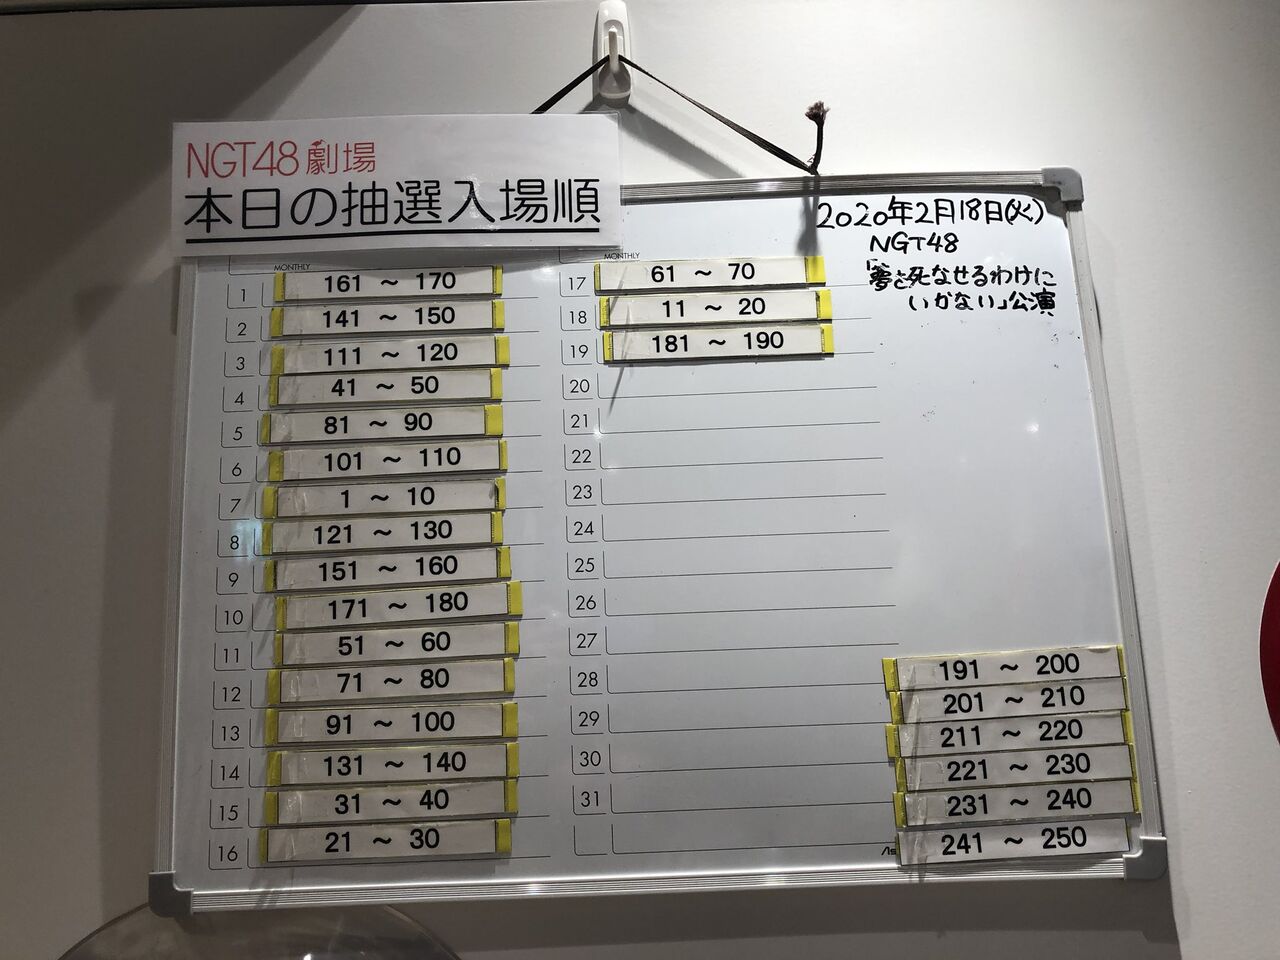 NGT48劇場
本日の抽選入場順
2020年2月18日(火)
NGT48
「夢を死なせるわけに
いかない」公演
MONTHLY
1 161 ～ 170
2 141 ～ 150
3 111 ～ 120
4 41 ～ 50
5 81 ～ 90
6 101 ～ 110
7 1 ～ 10
8 121 ～ 130
9 151 ～ 160
10 171 ～ 180
11 51 ～ 60
12 71 ～ 80
13 91 ～ 100
14 131 ～ 140
15 31 ～ 40
16 21 ～ 30
MONTHLY
17 61 ～ 70
18 11 ～ 20
19 181 ～ 190
20
21
22
23
24
25
26
27
28
29
30
31
191 ～ 200
201 ～ 210
211 ～ 220
221 ～ 230
231 ～ 240
241 ～ 250